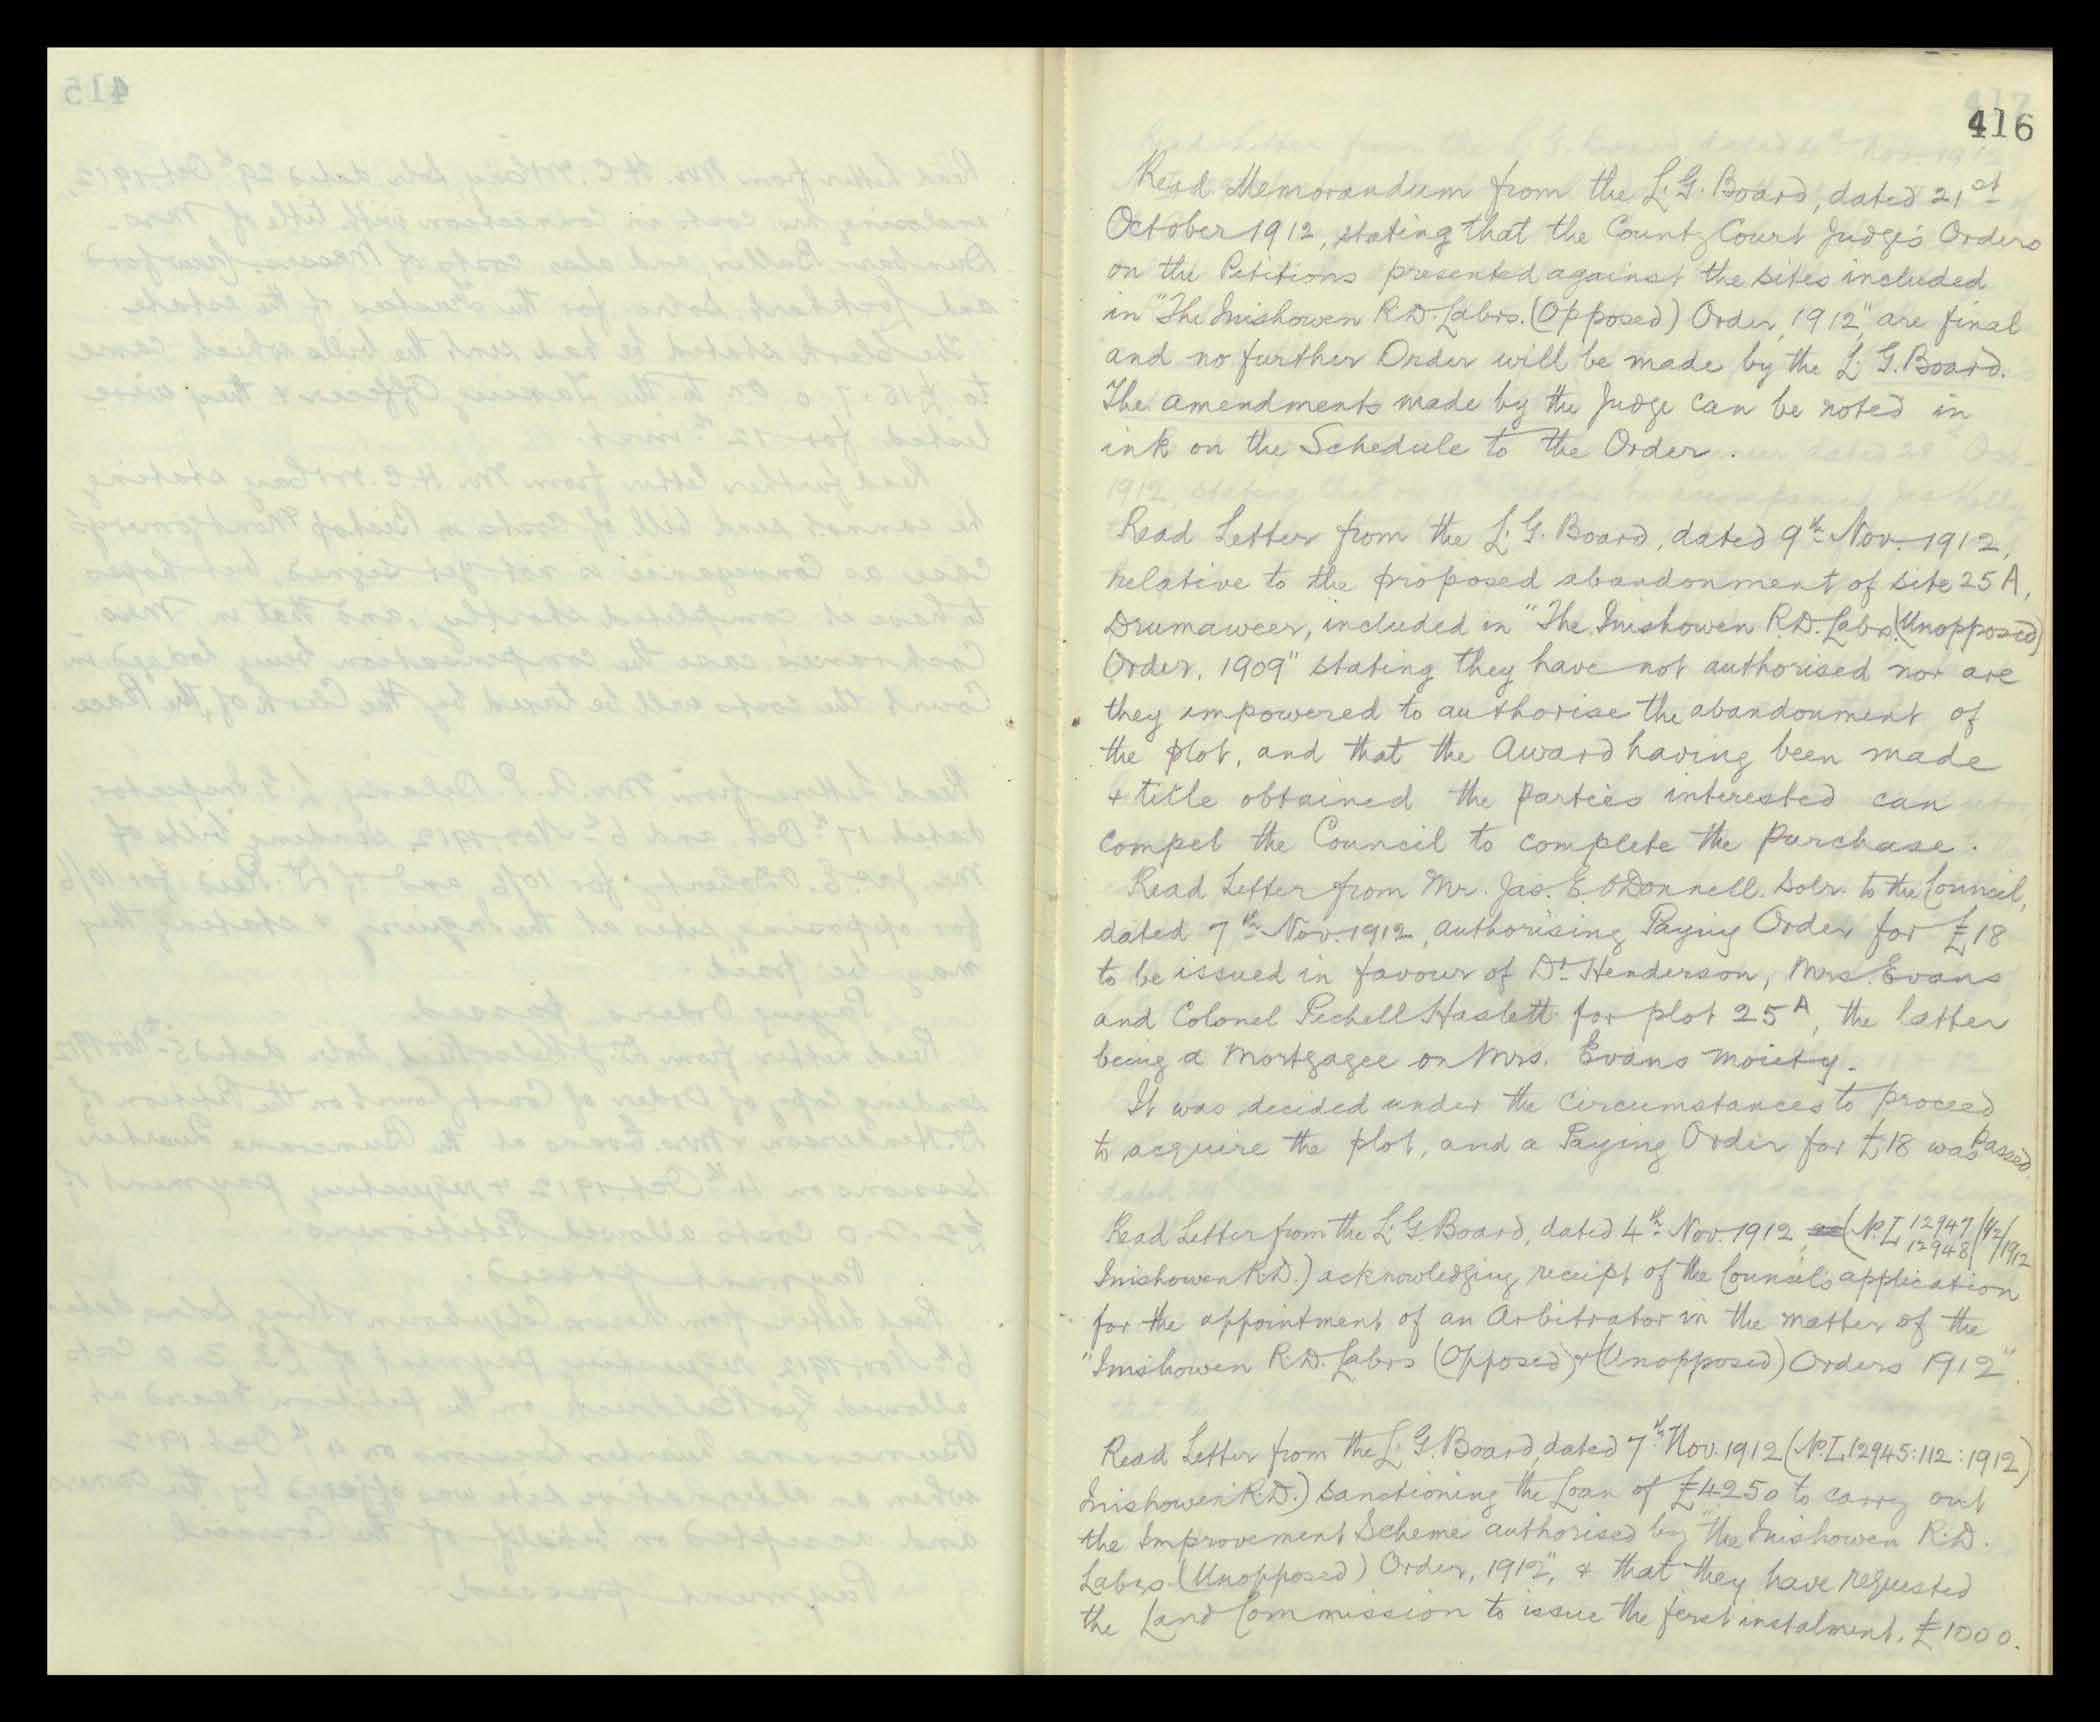 416
Read Memorandum from the L.G. Board, dated 21st
October 1912, stating that the County Court Judge's Orders
on the Petitions presented against the sites included
in "The Inishowen R.D. Labrs. (Opposed) Order, 1912", are final
and no further Order will be made by the L.G. Board.
The amendments made by the Judge can be noted in
ink on the Schedule to the Order.
Read Letter from the L.G. Board, dated 9th Nov. 1912,
relative to the proposed abandonment of site 25A,
Drumaweer, included in "The Inishowen R.D. Labrs. (Unopposed)
Order, 1909" stating they have not authorised nor are
they empowered to authorise the abandonment of
the plot, and that the Award having been made
& title obtained the parties interested can
compel the Council to complete the purchase.
Read Letter from Mr. Jas. E. O'Donnell. Solr. to the Council,
dated 7th Nov. 1912, authorising Paying Order for £18
to be issued in favour of Dr. Henderson, Mrs. Evans
and Colonel Pechell Haslett for plot 25A, the latter
being a mortgagee on Mrs. Evans moiety.
It was decided under the circumstances to proceed
to acquire the plot, and a Paying Order for £18 was passed.
Read Letter from the L.G. Board, dated 4th Nov. 1912, (No. L 12947/12948/112/1912
Inishowen R.D.) acknowledging receipt of the Council's application
for the appointment of an Arbitrator in the matter of the
"Inishowen R.D. Labrs (Opposed) & (Unopposed) Orders 1912".
Read Letter from the L.G. Board, dated 7th Nov. 1912 (No. L. 12945:112:1912)
Inishowen R.D.) sanctioning the Loan of £4250 to carry out
the Improvement Scheme authorised by "the Inishowen R.D.
Labrs. (Unopposed) Order, 1912", & that they have requested
the Land Commission to issue the first instalment, £1000.